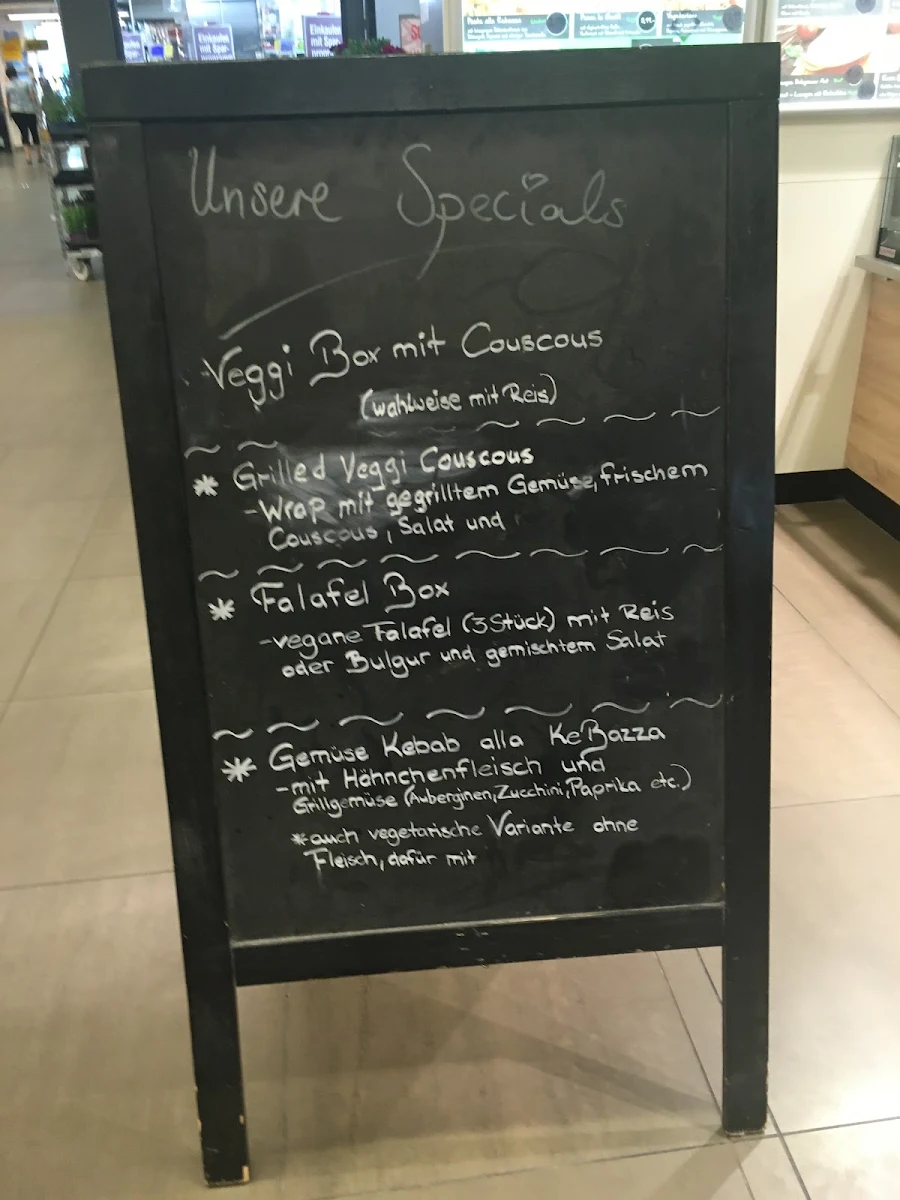 Einkaufen
mit Spar-
Einkaufen
mit Spar-
Unsere Specials
Veggi Box mit Couscous
(wahlweise mit Reis)
* Grilled Veggi Couscous
-Wrap mit gegrilltem Gemüse, frischem
Couscous, Salat und
* Falafel Box
-vegane Falafel (3 Stück) mit Reis
oder Bulgur und gemischtem Salat
* Gemüse Kebab alla KeBazza
-mit Höhnchenfleisch und
Grillgemüse (Auberginen, Zucchini, Paprika etc.)
*auch vegetarische Variante ohne
Fleisch, dafür mit